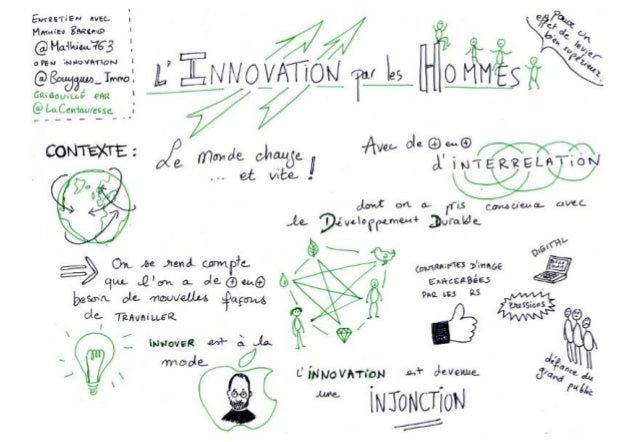 ENTRETIEN AVEC
MATHIEU BARRAUD
@Mathieu763
OPEN INNOVATION
@Bouygues_Immo.
GRIBOUILLÉ PAR
@LaCentauresse
L'INNOVATION par les HOMMES
pour un
effet de levier
bien supérieur.
CONTEXTE :
Le Monde change
... et vite !
Avec de ⊕ en ⊕
d'INTERRELATION
dont on a pris conscience avec
le Développement Durable
⇒ On se rend compte
que l'on a de ⊕ en ⊕
besoin de nouvelles façons
de TRAVAILLER
CONTRAINTES D'IMAGE
EXACERBÉES
PAR LES RS
DIGITAL
Pressions
défiance du
grand public
INNOVER est à la
mode
L'INNOVATION est devenue
une INJONCTION